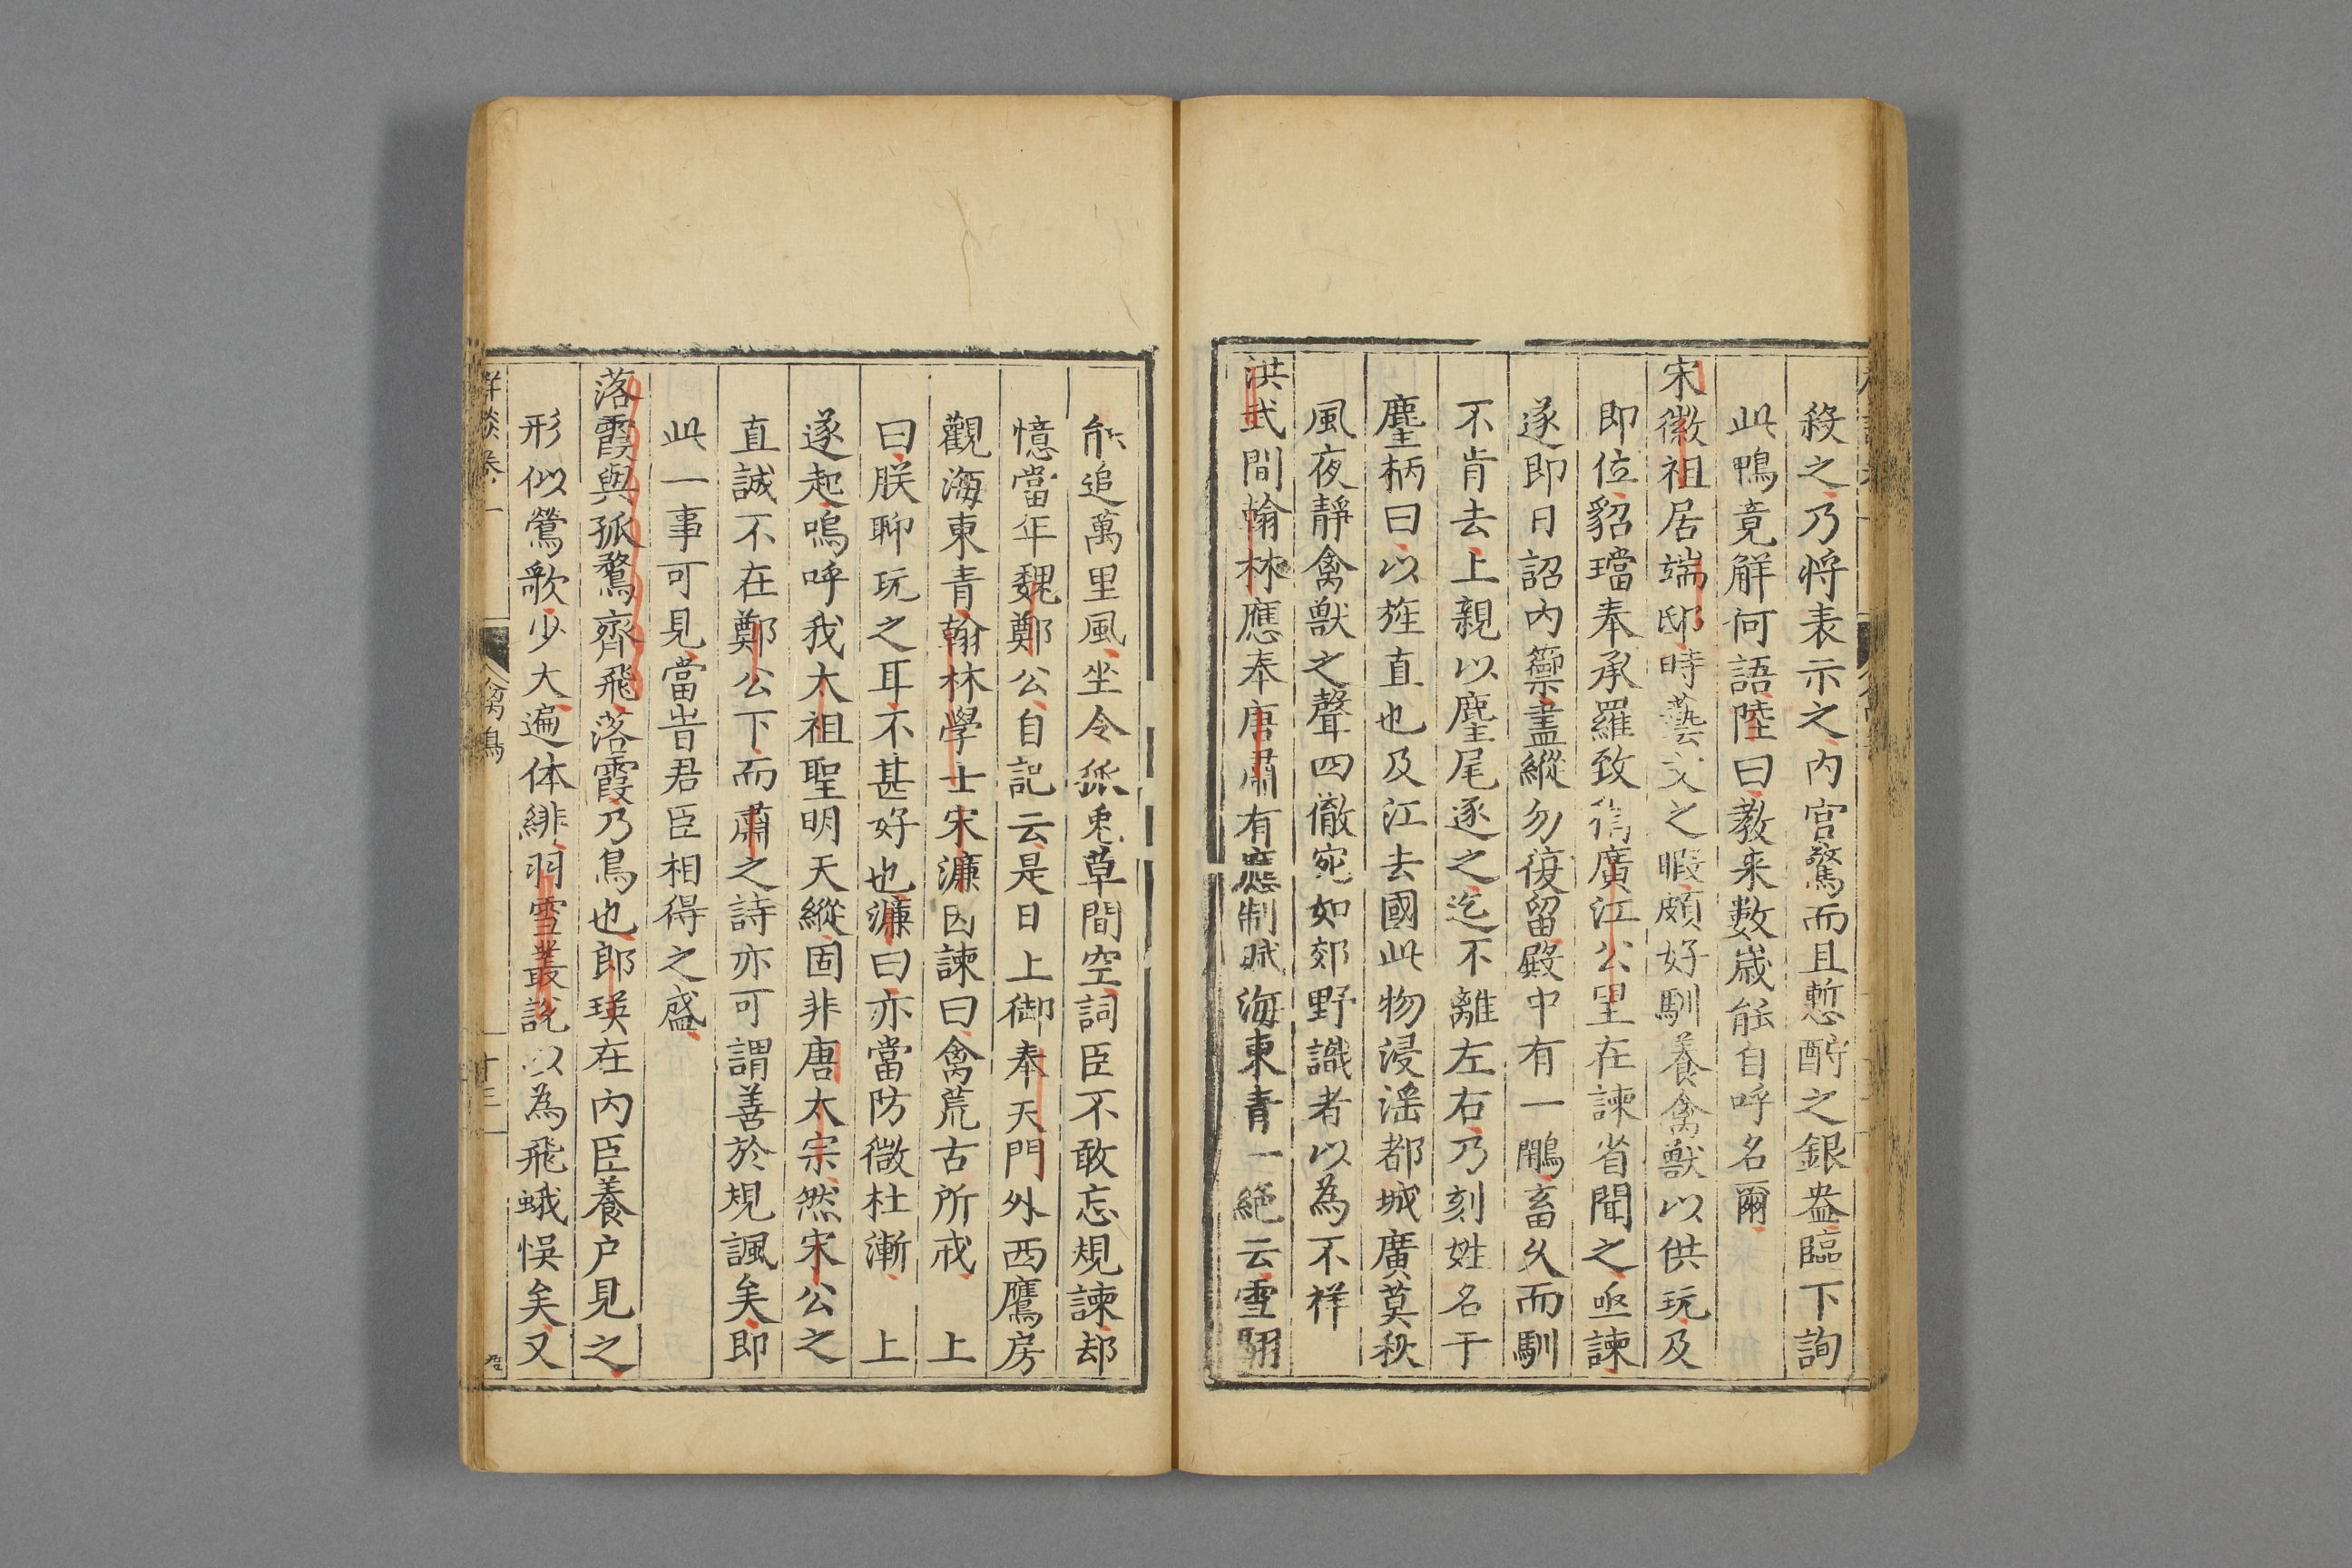 殺之乃将表示之内宫驚而且慙酧之銀盎臨下詢
此鴨竟解何語陸曰教来数歳能自呼名爾
宋徽祖居端邸時藝文之暇頗好馴養禽獸以供玩及
即位貂璫奉承羅致稍廣江公望在諫省聞之亟諫
遂即日詔内籞盡縱勿復留殿中有一鷴畜乆而馴
不肯去上親以麈尾逐之迄不離左右乃刻姓名于
麈柄曰以旌直也及江去國此物浸滛都城廣莫秋
風夜靜禽獸之聲四徹宛如郊野識者以為不祥
洪武間翰林應奉唐肅有應制賦海東青一絶云雪翮
能追萬里風坐令狐兎草間空詞臣不敢忘規諫却
憶當年魏鄭公自記云是日上御奉天門外西鷹房
觀海東青翰林學士宋濂因諫曰禽荒古所戒 上
曰朕聊玩之耳不甚好也濂曰亦當防微杜漸 上
遂起嗚呼我太祖聖明天縱固非唐太宗然宋公之
直誠不在鄭公下而蕭之詩亦可謂善於規諷矣即
此一事可見當旹君臣相得之盛
落霞與孤鶩齊飛落霞乃鳥也郎瑛在内臣養户見之
形似鶯歌少大遍体緋羽雪叢說以為飛蛾悞矣又
群談卷一 禽鳥 十三